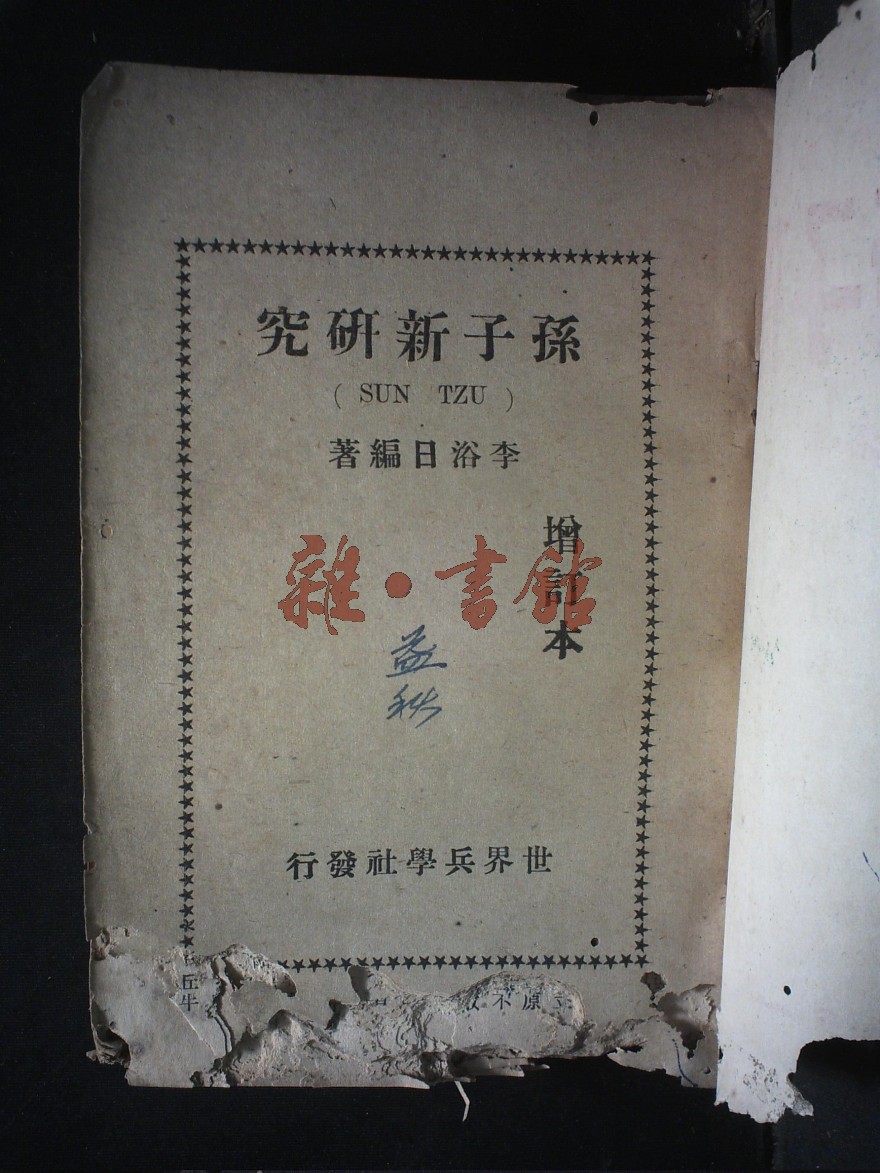 孫子新研究
( SUN TZU )
李浴日編著
增訂本
雜·書館
益秋
世界兵學社發行
原不